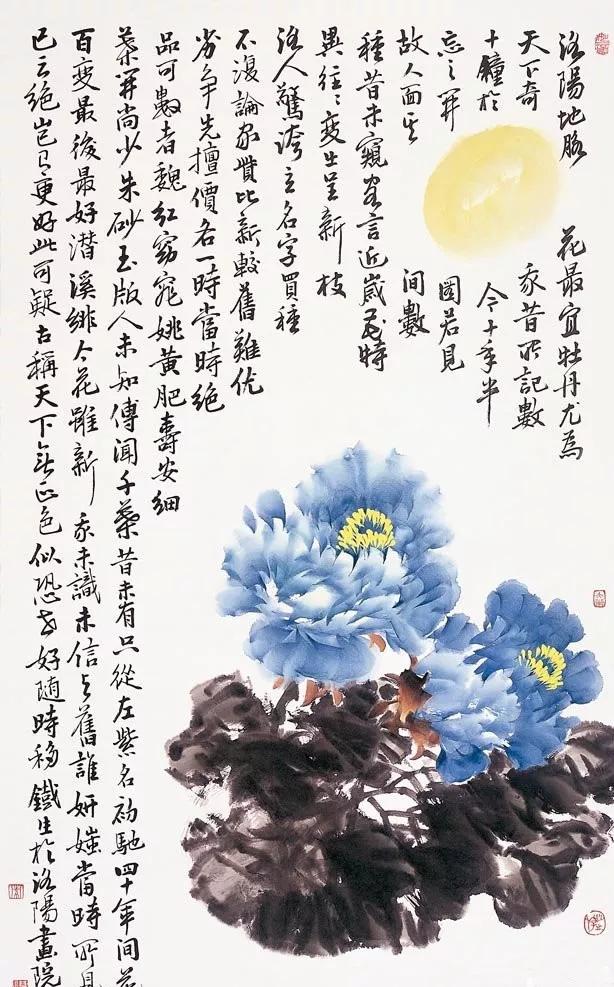 洛陽地脈花最宜牡丹尤為
天下奇我昔所記數
十鐘於今十年半
忘之開圖若見
故人面其間數
種昔未窺客言近歲花特
異往〻變出呈新枝
洛人驚誇立名字買種
不復論家貲比新較舊難優
劣爭先擅價各一時當時絕
品可數者魏紅窈窕姚黃肥壽安細
葉開尚少朱砂玉版人未知傳聞千葉昔未有只從左紫名初馳四十年間花
百變最後最好潛溪緋今花雖新我未識未信与舊誰妍媸當時所見
已云絕豈有更好此可疑古稱天下无正色似恐世好隨時移鐵生於洛陽畫院